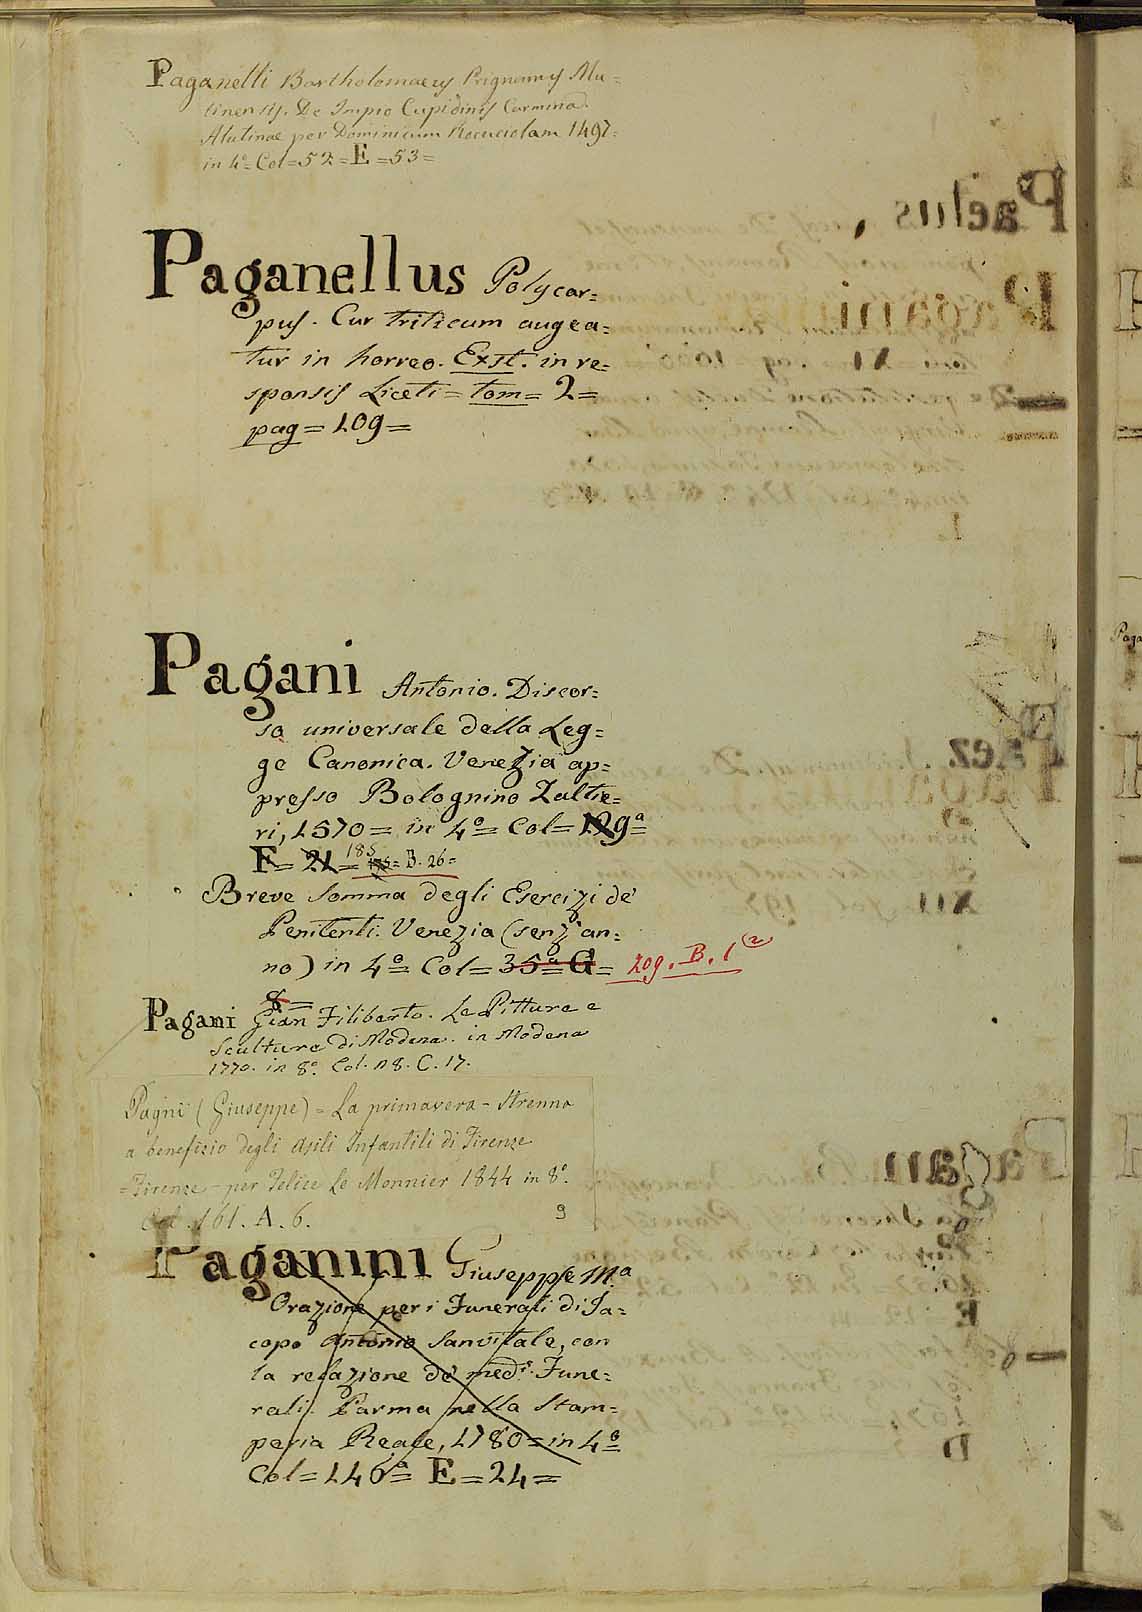 Paganelli Bartholomaeus Prignanus Mu=
tinensis. De Impio Cupidinis Carmina.
Mutinae per Dominicum Rocuciolam 1497=
in 4º= Col=52= E =53=
Paganellus Polycar=
pus. Cur triticum augea=
tur in horreo. Exst. in re=
sponsis Liceti= tom= 2=
pag= 109=
Pagani Antonio. Discor=
so universale della Leg=
ge Canonica. Venezia ap=
presso Bolognino Zaltie=
ri, 1570= in 4º= Col= 129ª=
E= 21= 185 = B. 26=
Breve Somma degli Esercizi de'
Penitenti. Venezia (senz'an=
no) in 4º= Col= 35ª= G= 209. B. 1(2)
8=
Pagani Gian Filiberto. Le Pitture e
Sculture di Modena. in Modena
1770. in 8º. Col. n 8. C. 17.
Pagni (Giuseppe)= La primavera - Strenna
a benefizio degli asili Infantili di Firenze
=Firenze - per Felice Le Monnier 1844 in 8º.
Col. 161. A. 6. 9
Paganini Giuseppe Mª
Orazione per i Funerali di Ja=
copo Antonio Sanvitale, con
la relazione de' medi. Fune=
rali. Parma nella Stam=
peria Reale, 1780= in 4º=
Col= 146ª= E= 24=